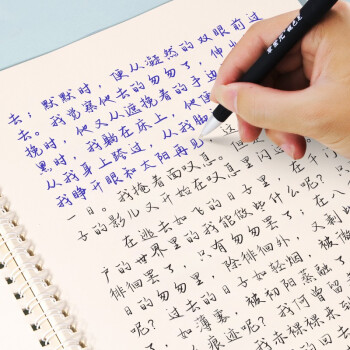 去；默默时，便从凝然的双眼前过
去。我觉察他去的匆匆了，伸出
挽时，他又从遮挽着的手边
黑时，我躺在床上，他便
从我身上跨过，从我脚
我睁开眼和太阳再见，这
一日。我掩着面叹息。但是
子的影儿又开始在叹息里闪过
在逃去如飞的日子里，在千门
户的世界里的我能做些什么呢？只
徘徊罢了，只有匆匆罢了；在八
日的匆匆里，除徘徊外，又剩
呢？过去的日子如轻烟，被微
如薄雾，被初阳蒸融了
呢？我何曾留
痕迹呢？我赤裸裸来
的回去